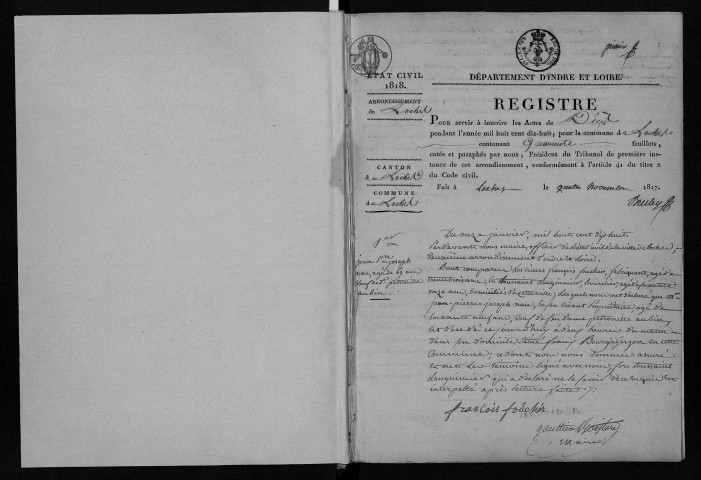 ÉTAT CIVIL
1818.
ARRONDISSEMENT
de Loches
CANTON
de Loches
COMMUNE
de Loches
DÉPARTEMENT D'INDRE ET LOIRE.
REGISTRE
Pour servir à inscrire les Actes de Décès
pendant l'année mil huit cent dix-huit, pour la commune de Loches
contenant Quarante feuillets,
cotés et paraphés par nous, Président du Tribunal de première ins-
tance de cet arrondissement, conformément à l'article 41 du titre 2
du Code civil.
Fait à Loches le quatre Novembre 1817.
1er
jean pre joseph
nau, agé de 69 ans
veuf de de petronille
aubin
Du onze janvier, mil huit cent dix huit
Pardevant nous maire, officier de l'état civil de la ville de Loches,
deuxième arrondissement d'indre et Loire.
Sont comparus Les sieurs françois foucher, fabriquant, agé de
trente ans, et toussaint Languinier,
onze ans, domiciliés de cette ville; Lesquels nous ont déclaré que Mr
jean-pierre-joseph nau, vivant Propriétaire, agé de
soixante neuf ans, veuf de feu dame petronille aubin,
est décédé ce jourd'huy à deux heures du matin
dans son domicile en cette
Commune; ce dont nous nous sommes assuré
et ont les témoins signé avec nous, fors toussaint
Languinier qui a déclaré ne le savoir de ce enquis et
interpellé après lecture faite.
françois foucher
maire